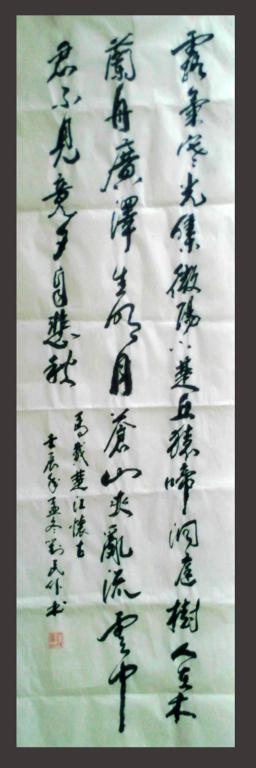 露气寒光集微阳下楚丘猿啼洞庭樹人在木
蘭舟廣澤生明月蒼山夾亂流雲中
君不見竟夕自悲秋
馬戴楚江懷古
壬辰年孟冬劉民作书